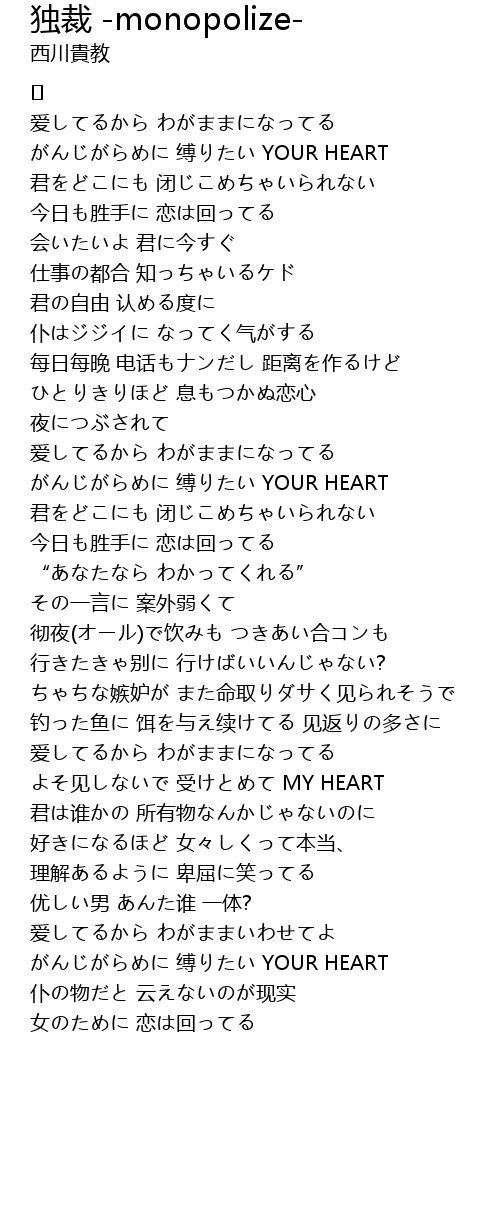 独裁 -monopolize-
西川貴教
[]
爱してるから わがままになってる
がんじがらめに 缚りたい YOUR HEART
君をどこにも 闭じこめちゃいられない
今日も胜手に 恋は回ってる
会いたいよ 君に今すぐ
仕事の都合 知っちゃいるケド
君の自由 认める度に
仆はジジイに なってく气がする
每日每晚 电话もナンだし 距离を作るけど
ひとりきりほど 息もつかぬ恋心
夜につぶされて
爱してるから わがままになってる
がんじがらめに 缚りたい YOUR HEART
君をどこにも 闭じこめちゃいられない
今日も胜手に 恋は回ってる
“あなたなら わかってくれる”
その一言に 案外弱くて
彻夜(オール)で饮みも つきあい合コンも
行きたきゃ别に 行けばいいんじゃない?
ちゃちな嫉妒が また命取りダサく见られそうで
钓った鱼に 饵を与え续けてる 见返りの多さに
爱してるから わがままになってる
よそ见しないで 受けとめて MY HEART
君は谁かの 所有物なんかじゃないのに
好きになるほど 女々しくって本当、
理解あるように 卑屈に笑ってる
优しい男 あんた谁 一体?
爱してるから わがままいわせてよ
がんじがらめに 缚りたい YOUR HEART
仆の物だと 云えないのが现实
女のために 恋は回ってる